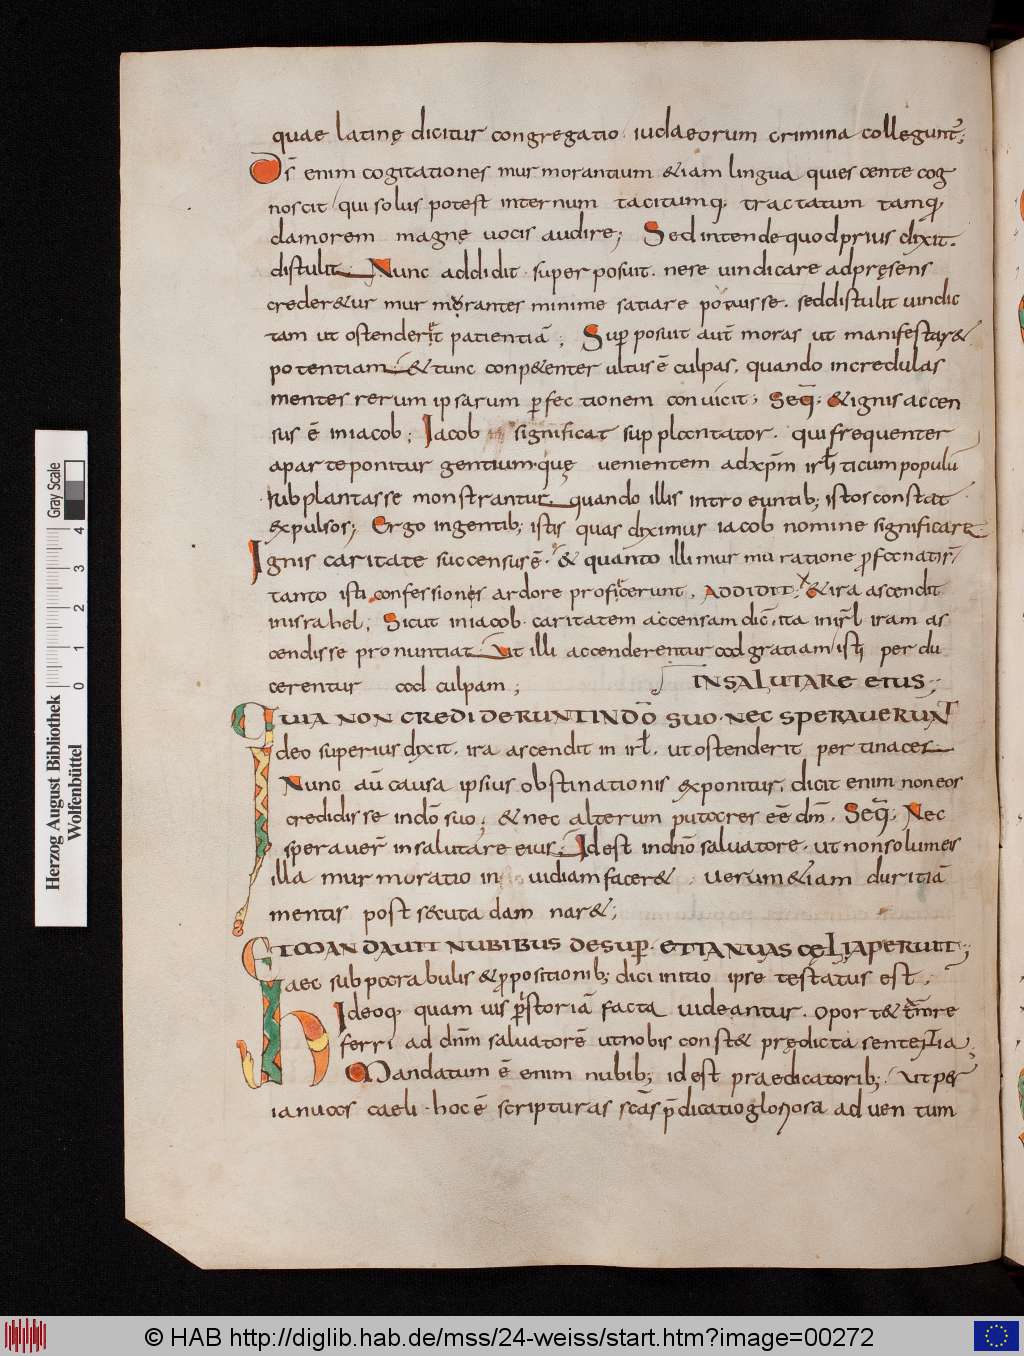 quae latine dicitur congregatio iudaeorum crimina collegunt;
Ds̄ enim cogitationes murmorantium &iam lingua quiescente cog
noscit / qui solus potest internum tacitumq. tractatum tamq.
clamorem magnę uocis audire; Sed intende quod prius dixit.
distulit. Nunc addidit. superposuit. ne se uindicare ad pręsens
creder&ur murmorantes minime satiare potuisse. sed distulit uindic
tam ut ostenderet patientiā; Sup posuit aut̄ moras ut manifestar&
potentiam. & tunc conp&enter ultus ē culpas. quando incredulas
mentes rerum ipsarum pfectionem conuicit; Seq̄. & ignis accen
sus ē in iacob; Iacob significat supplantator. qui frequenter
a parte ponitur gentium. quę uenientem ad xp̄m irłiticum populū
subplantasse monstrantur. quando illis introeuntib; istos constat
expulsos; Ergo in gentib; istis quas diximus iacob nomine significare
Ignis caritate succensus ē. & quanto illi murmuratione pfanati sr̄
tanto isti confessionis ardore proficerunt. ADDIDIT. & ira ascendit
in israhel; Sicut in iacob caritatem accensam dic̄. ita in irł iram as
cendisse pronuntiat. Ut illi accenderentur ad gratiam / isti perdu
cerentur ad culpam;
IN SALUTARE EIUS;
QUIA NON CREDIDERUNT IN DŌ SUO. NEC SPERAUERUNT
Ideo superius dixit. ira ascendit in irł. ut ostenderit pertinaces
Nunc aū causa ipsius obstinationis exponitur. dicit enim non eos
credidisse in dō suo; & nec alterum putares eē dn̄m. Seq̄. Nec
sperauer̄ in salutare eius. Id est in dn̄o saluatore. ut non solum es
illa murmoratio in uidiam facer& uerum &iam duritiā
mentis post secuta damnar&;
ET MANDAUIT NUBIBUS DESUP. ET IANUAS CĘLI APERUIT;
Haec sub parabulis & ppositionib; dici initio ipse testatus est.
Ideoq. quam uis p storiā facta uideantur. oport& tam̄ re
ferri ad dn̄m saluatorē ut nobis const& prędicta sententia;
Mandatum ē enim nubib; id est praedicatorib; ut per
ianuas caeli. hoc ē scripturas scās p̄dicatio gloriosa aduentum
Herzog August Bibliothek
Wolfenbüttel
Gray Scale
0 1 2 3 4
© HAB http://diglib.hab.de/mss/24-weiss/start.htm?image=00272